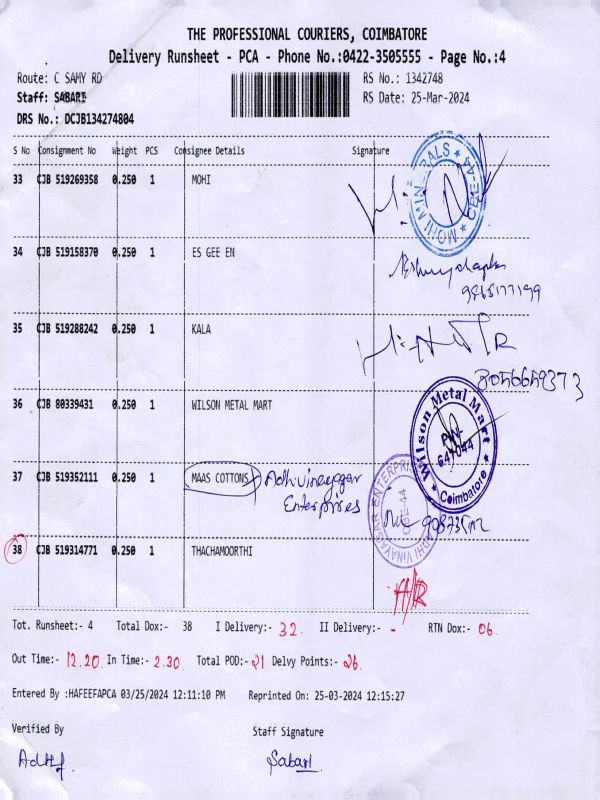 THE PROFESSIONAL COURIERS, COIMBATORE
Delivery Runsheet - PCA - Phone No.:0422-3505555 - Page No.:4
Route: C SAMY RD RS No.: 1342748
Staff: SABARI RS Date: 25-Mar-2024
DRS No.: DCJB134274804
S No Consignment No Weight PCS Consignee Details Signature
33 CJB 519269358 0.250 1 MOHI
MOHI MINERALS ★ CBE-44 ★
34 CJB 519158370 0.250 1 ES GEE EN
9865177199
35 CJB 519288242 0.250 1 KALA
8056659373
36 CJB 80339431 0.250 1 WILSON METAL MART
Wilson Metal Mart
PIN-
641044
★ Coimbatore ★
37 CJB 519352111 0.250 1 MAAS COTTONS Adhivinayagar
Enterprises
ADHI VINAYAGAR ENTERPRIS
CBE-44
38 CJB 519314771 0.250 1 THACHAMOORTHI
Tot. Runsheet:- 4 Total Dox:- 38 I Delivery:- 32. II Delivery:- - RTN Dox:- 06.
Out Time:- 12.20 In Time:- 2.30 Total POD:- 21 Delvy Points:- 26.
Entered By :HAFEEFAPCA 03/25/2024 12:11:10 PM Reprinted On: 25-03-2024 12:15:27
Verified By Staff Signature
Sabari